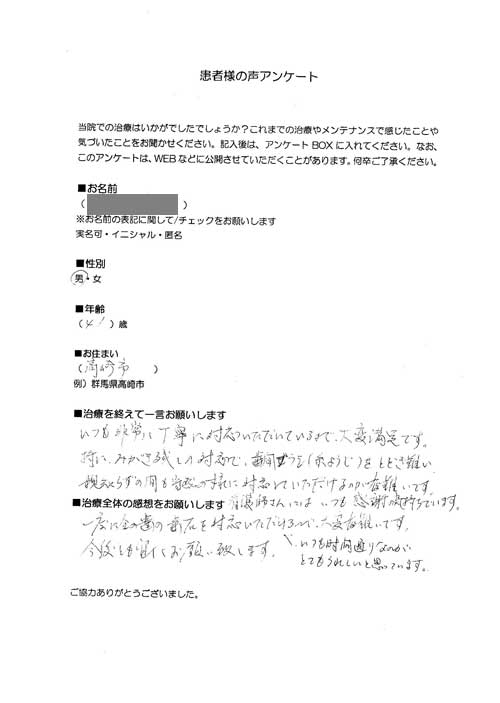 患者様の声アンケート
当院での治療はいかがでしたでしょうか？これまでの治療やメンテナンスで感じたことや
気づいたことをお聞かせください。記入後は、アンケート BOX に入れてください。なお、
このアンケートは、WEB などに公開させていただくことがあります。何卒ご了承ください。
■お名前
（　　　）
※お名前の表記に関して/チェックをお願いします
実名可・イニシャル・匿名
■性別
男・女
■年齢
（41）歳
■お住まい
（高崎市　）
例）群馬県高崎市
■治療を終えて一言お願いします
いつも非常に丁寧に対応いただいているので、大変満足です。
特に、みがき残しの対応で、歯間ブラシ(ようじ)をとどき難い
親知らずの間も対応いただけるのが有難いです。
■治療全体の感想をお願いします
看護師さんには いつも感謝の気持ちでいます。
一度に全の歯の歯石を対応いただけるので、大変有難いです。
今後とも宜しくお願い致します。
いつも時間通りなのが
とてもうれしいと思っています。
ご協力ありがとうございました。